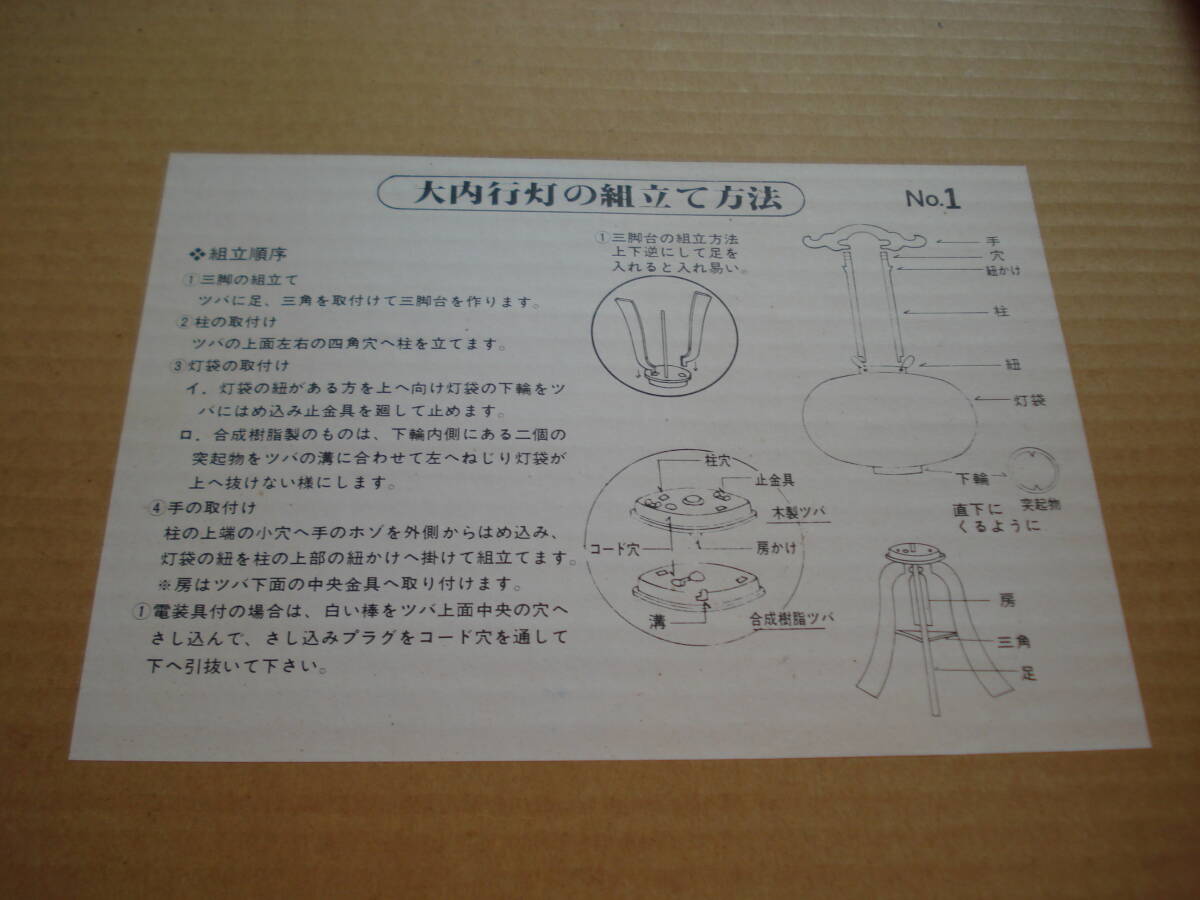 大内行灯の組立て方法
No.1
❖組立順序
①三脚の組立て
ツバに足、三角を取付けて三脚台を作ります。
②柱の取付け
ツバの上面左右の四角穴へ柱を立てます。
③灯袋の取付け
イ．灯袋の紐がある方を上へ向け灯袋の下輪をツ
バにはめ込み止金具を廻して止めます。
ロ．合成樹脂製のものは、下輪内側にある二個の
突起物をツバの溝に合わせて左へねじり灯袋が
上へ抜けない様にします。
④手の取付け
柱の上端の小穴へ手のホゾを外側からはめ込み、
灯袋の紐を柱の上部の紐かけへ掛けて組立てます。
※房はツバ下面の中央金具へ取り付けます。
①電装具付の場合は、白い棒をツバ上面中央の穴へ
さし込んで、さし込みプラグをコード穴を通して
下へ引抜いて下さい。
①三脚台の組立方法
上下逆にして足を
入れると入れ易い。
柱穴
止金具
木製ツバ
コード穴
房かけ
溝
合成樹脂ツバ
手
穴
紐かけ
柱
紐
灯袋
下輪
突起物
直下に
くるように
房
三角
足